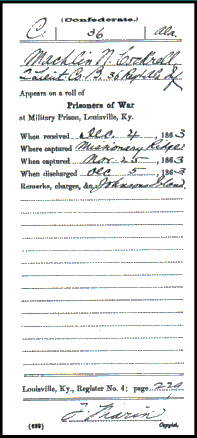 (Confederate.)
C. 36 Ala.
Machlin N. Cockrell
2 Lieut Co. B. 36 Regt Ala Inf
Appears on a roll of
Prisoners of War
at Military Prison, Louisville, Ky.
When received Dec. 4, 1863
Where captured Missionary Ridge
When captured Nov. 25, 1863
When discharged Dec 5, 1863
Remarks, charges, &c., Johnsons Island
Louisville, Ky., Register No. 4; page 229
(639) Copyist.